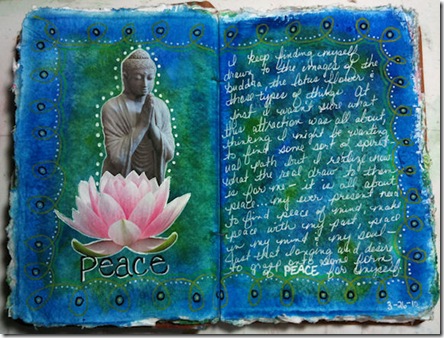 Peace
I keep finding myself
drawn to the images of the
buddha, the lotus flower &
those types of things. At
first I wasn't sure what
this attraction was all about,
thinking I might be wanting
to find some sort of spirit
ual path but I realize now
what the real draw to them
is for me. It is all about
peace... my ever present need
to find peace of mind, make
peace with my past, peace
in my mind & my soul
Just that longing and desire
to get some form
of PEACE for myself.
3-26-1